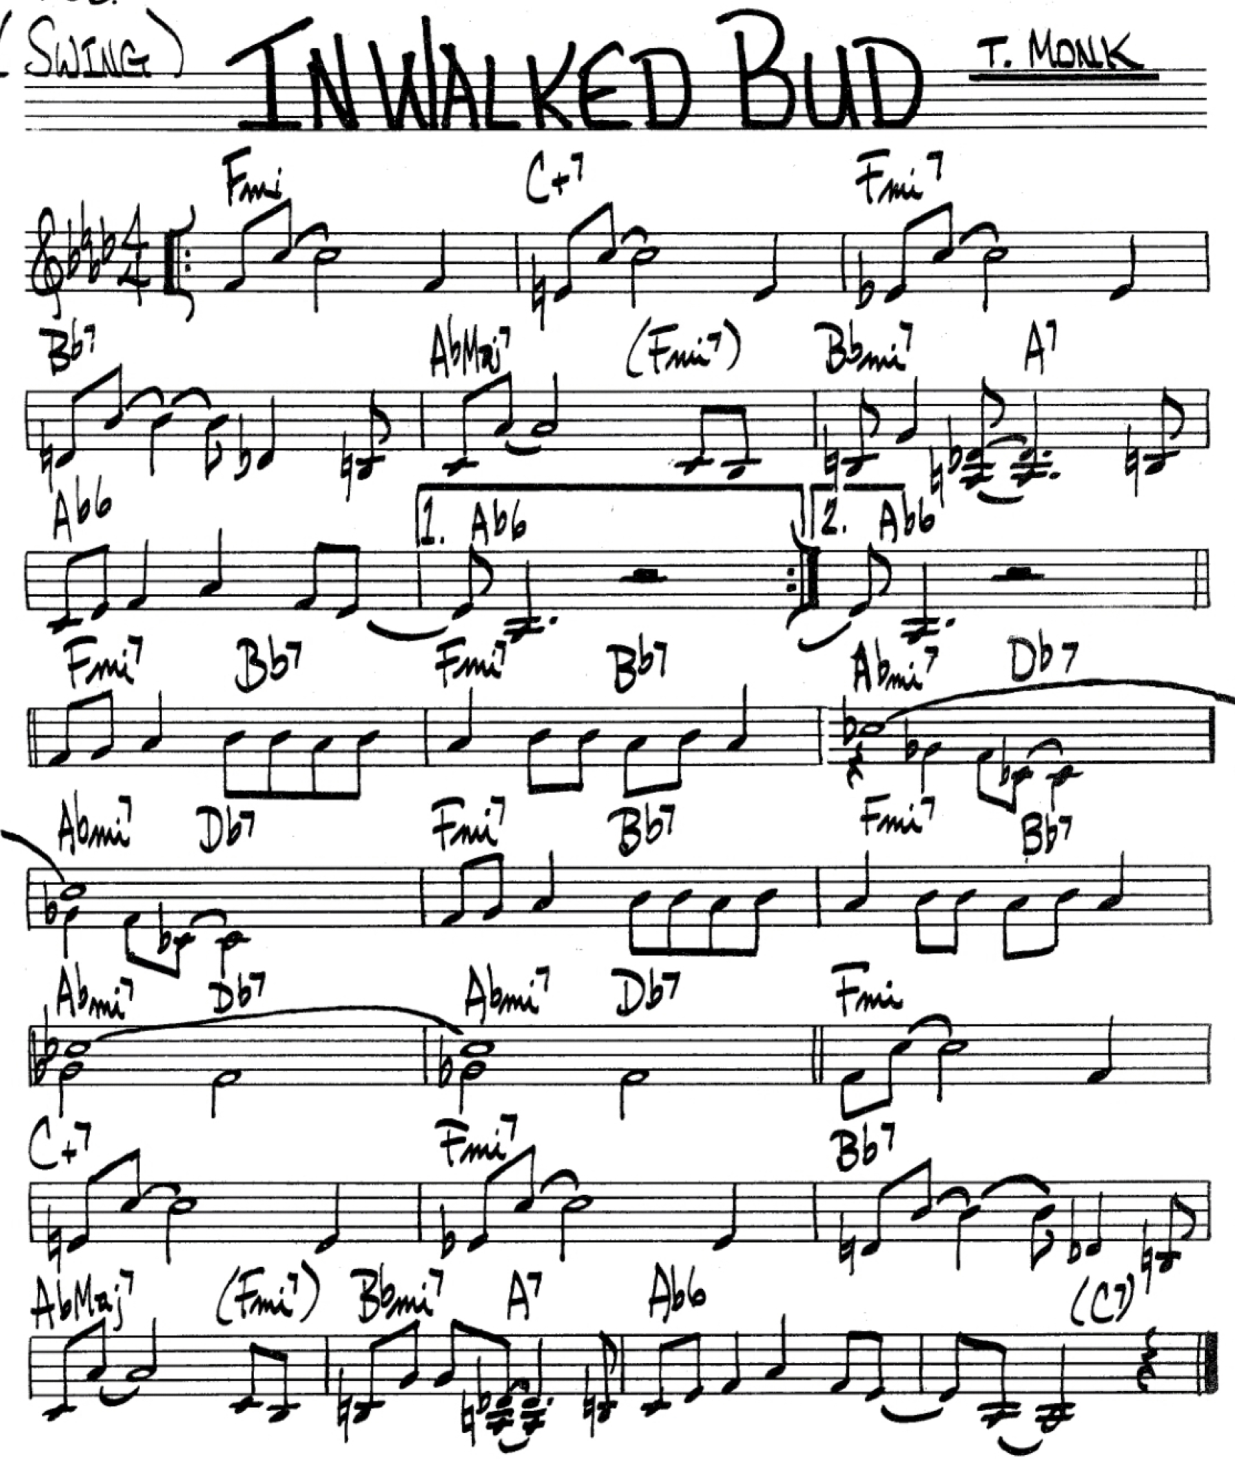 (SWING)
IN WALKED BUD
T. MONK
Fmi C+7 Fmi7
4/4
Bb7 AbMaj7 (Fmi7) Bbmi7 A7
Ab6 1. Ab6 2. Ab6
Fmi7 Bb7 Fmi7 Bb7 Abmi7 Db7
Abmi7 Db7 Fmi7 Bb7 Fmi7 Bb7
Abmi7 Db7 Abmi7 Db7 Fmi
C+7 Fmi7 Bb7
AbMaj7 (Fmi7) Bbmi7 A7 Ab6 (C7)